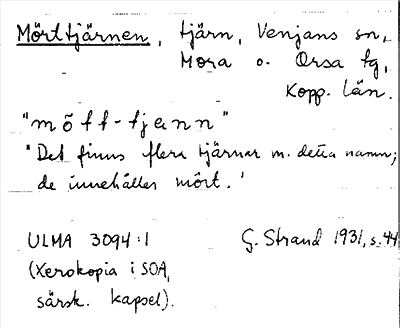 Mörttjärnen, tjärn, Venjans sn,
Mora o. Orsa tg,
Kopp. län.
"mött-tjenn"
"Det finns flera tjärnar m. detta namn;
de innehåller mört."
ULMA 3094:1 G. Strand 1931, s. 44
(Xerokopia i SOA,
särsk. kapsel).